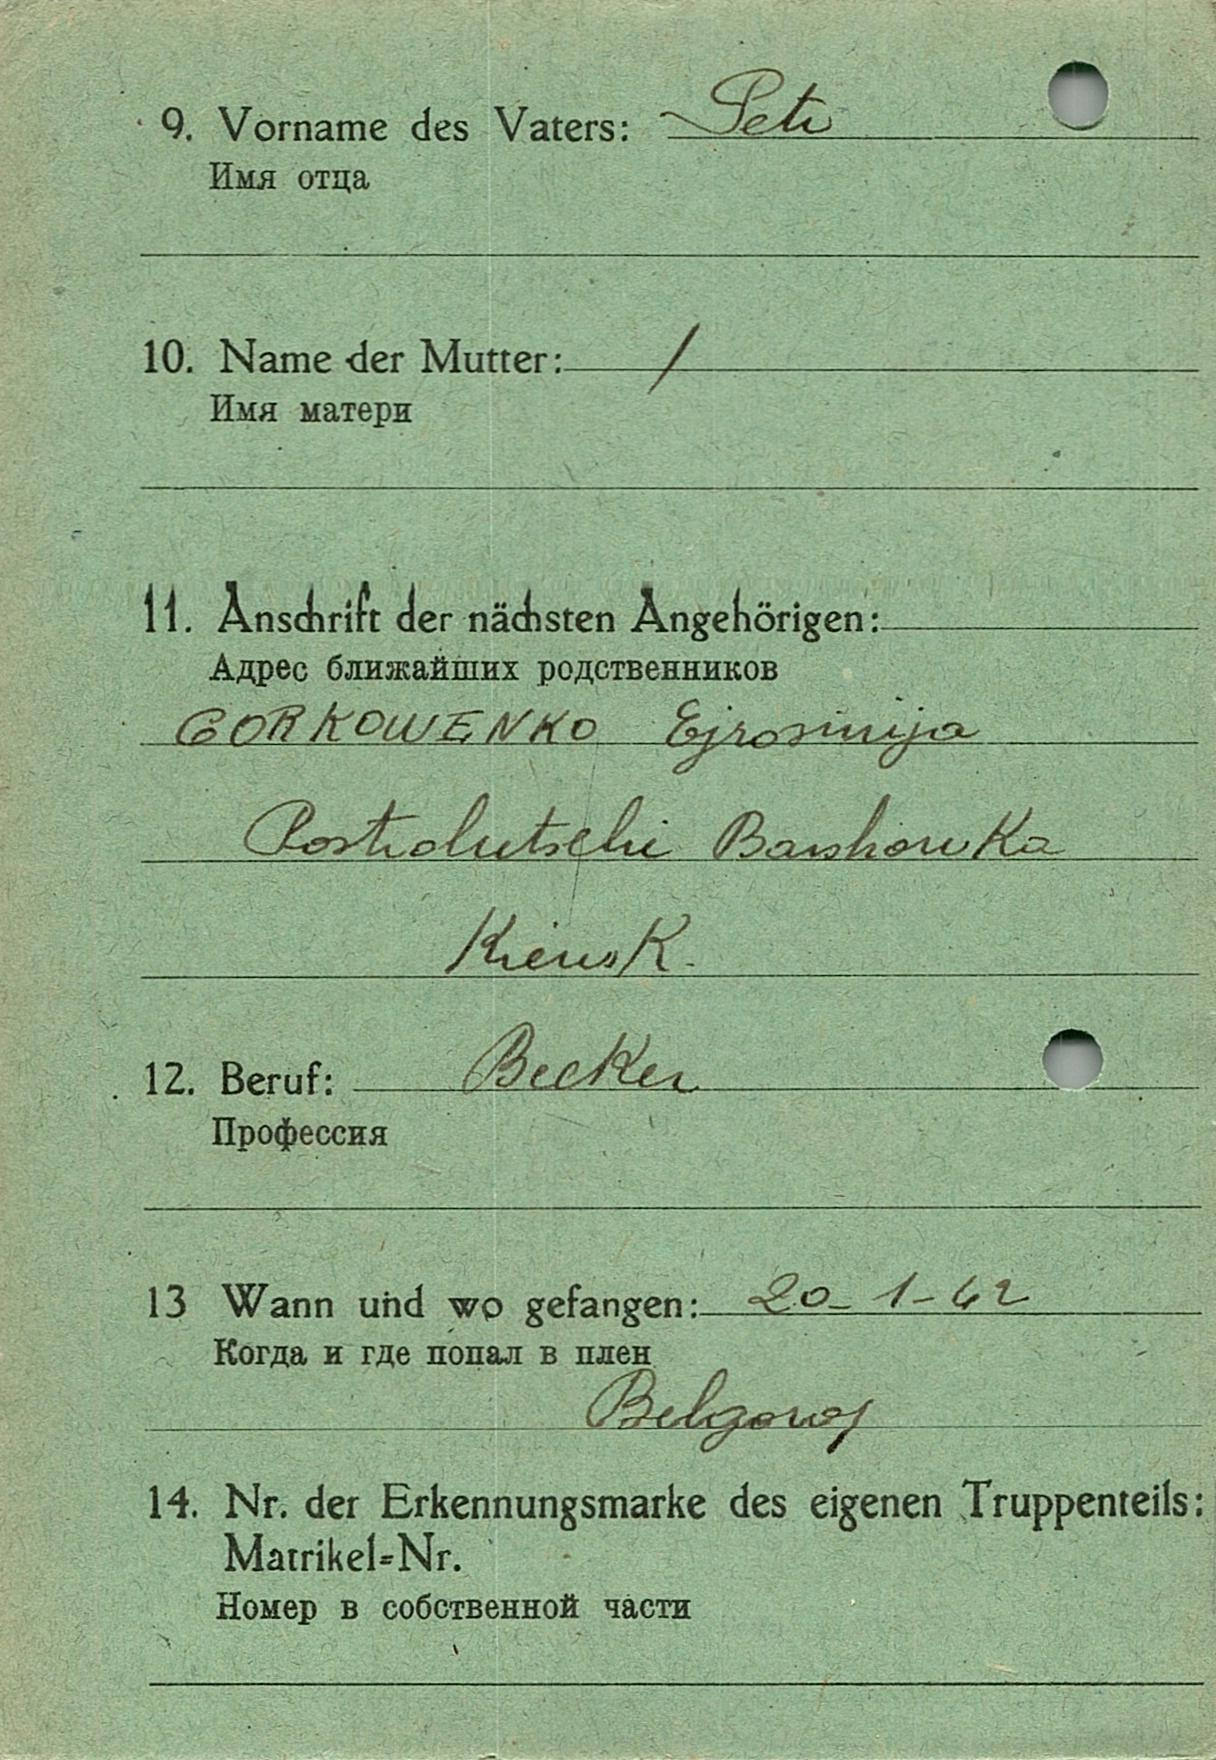 9. Vorname des Vaters: Petr
Имя отца
10. Name der Mutter: /
Имя матери
11. Anschrift der nächsten Angehörigen:
Адрес ближайших родственников
GORKOWENKO Efrosinija
Kiewsk.
12. Beruf: Becker
Профессия
13 Wann und wo gefangen: 20-1-42
Когда и где попал в плен
Belgorod
14. Nr. der Erkennungsmarke des eigenen Truppenteils:
Matrikel-Nr.
Номер в собственной части